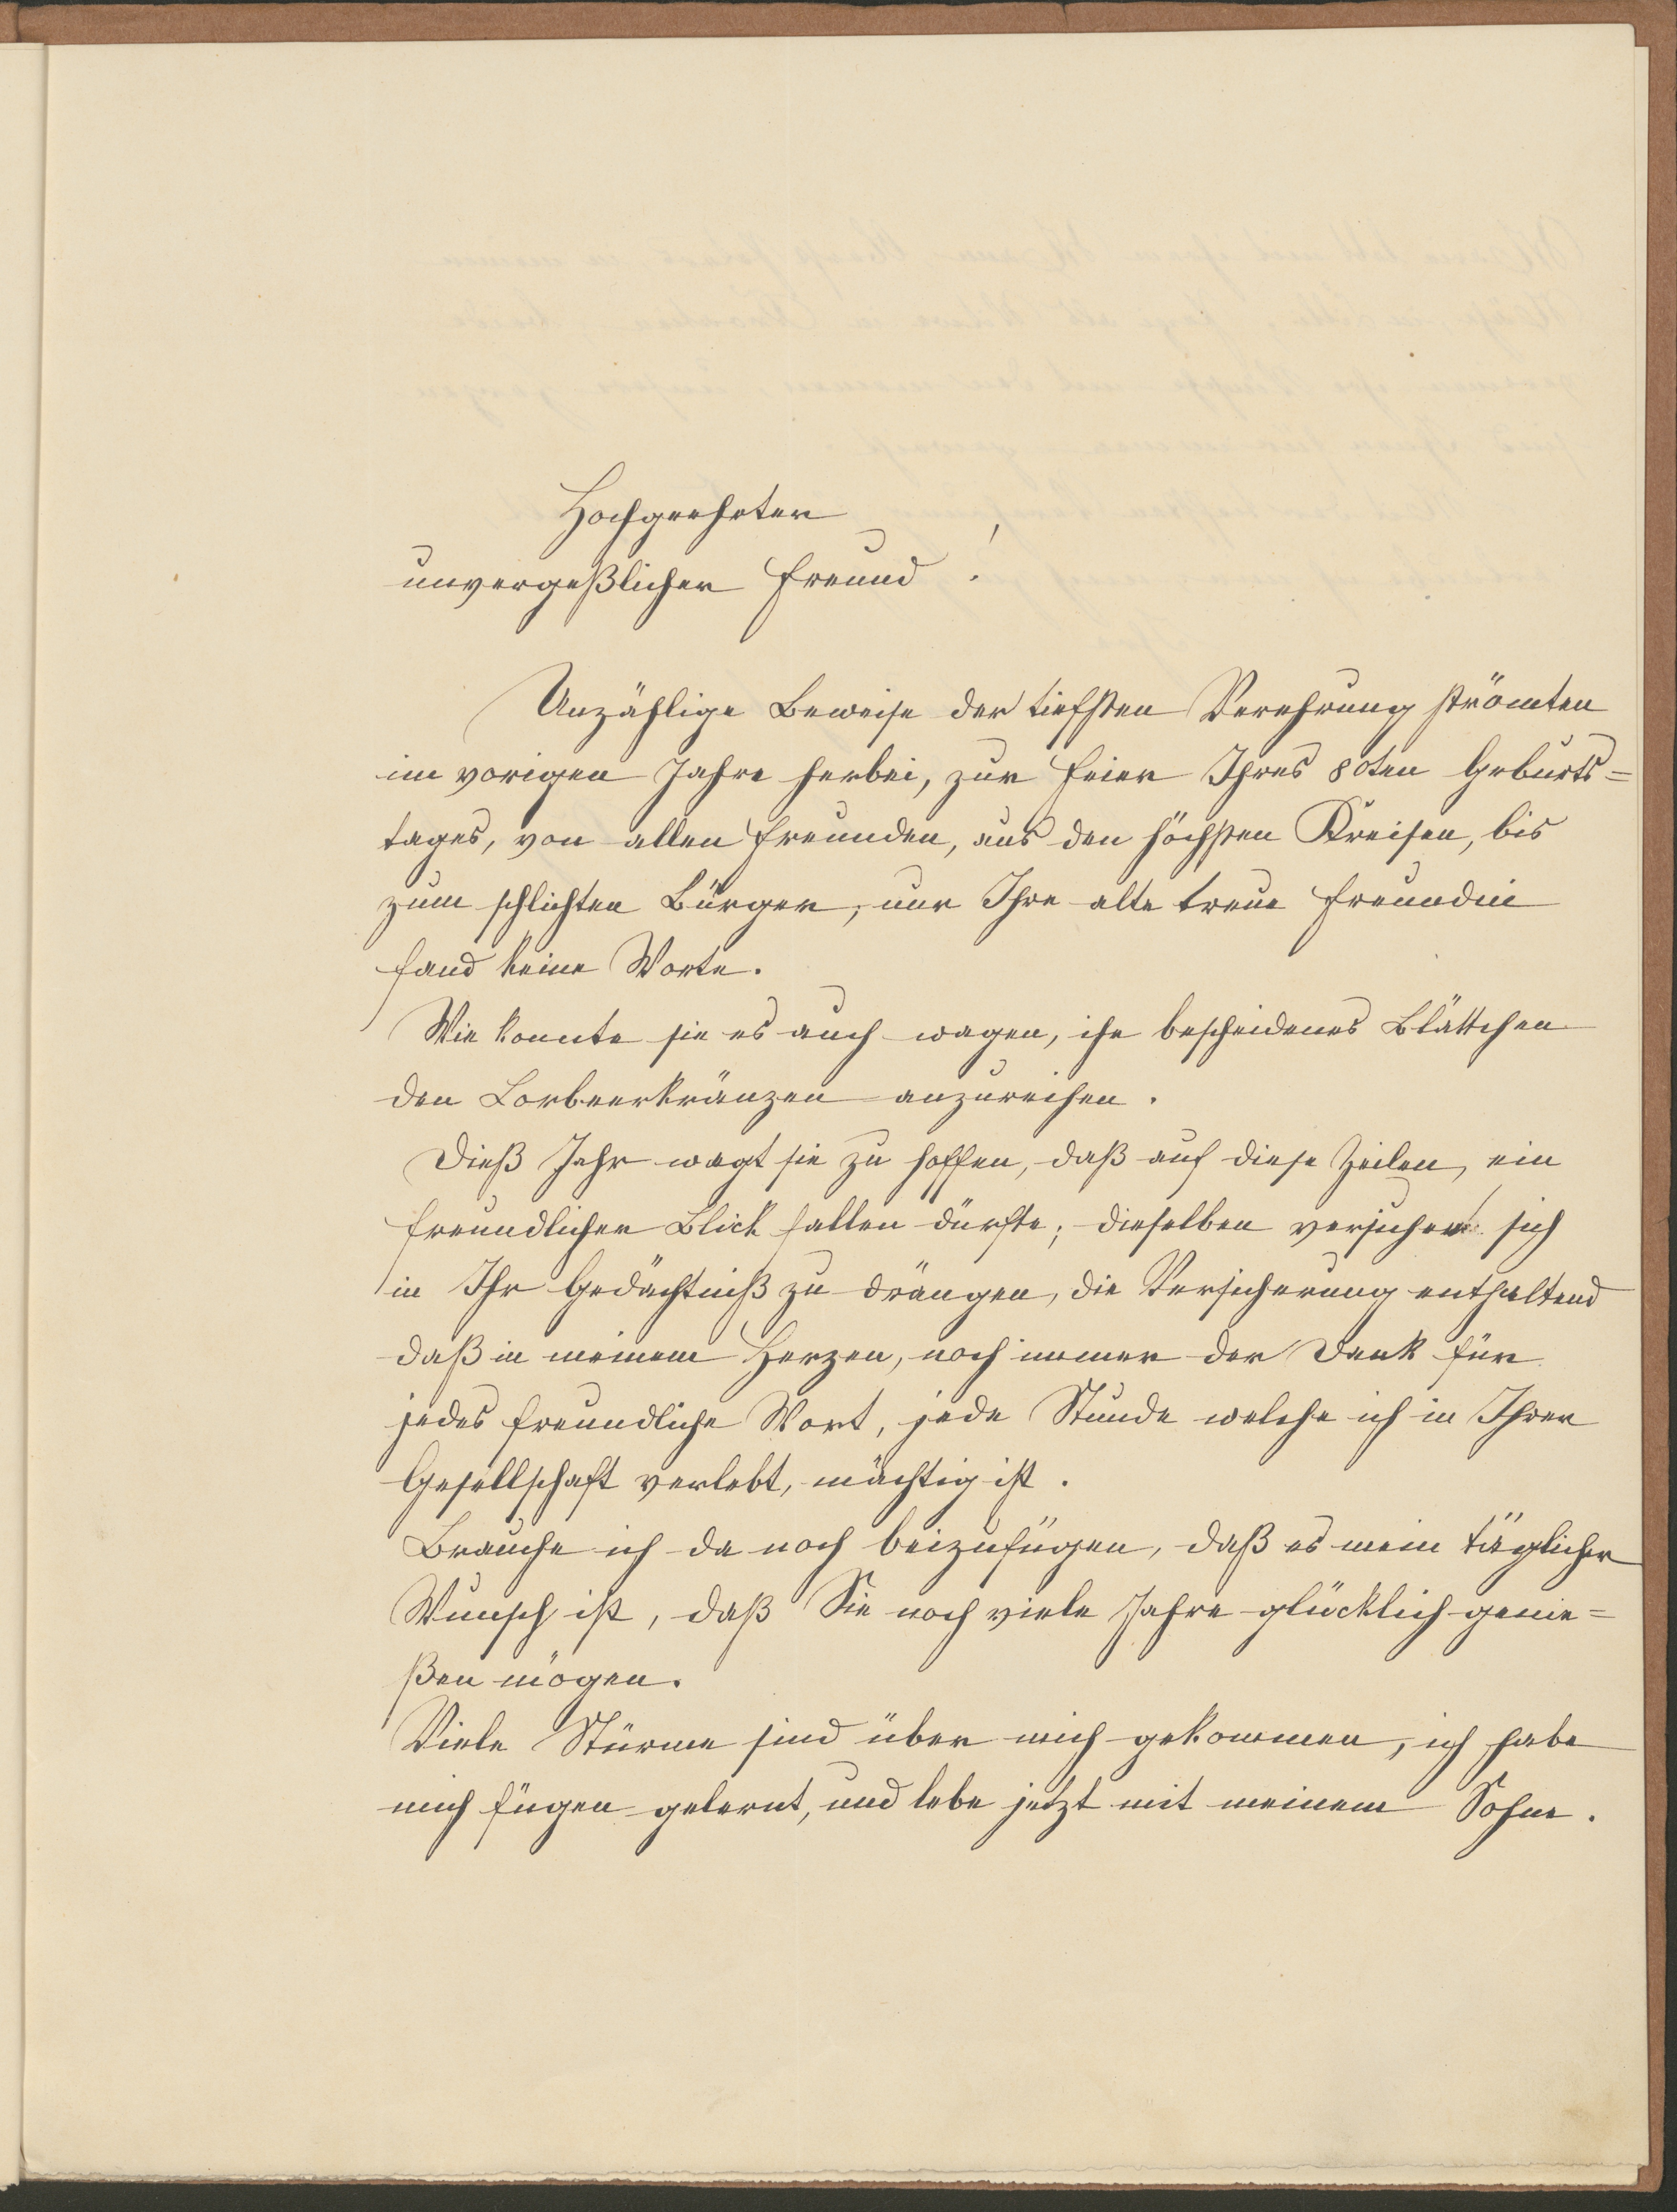 Hochgeehrter
unvergeßlicher Freund!
Unzählige Beweise der tiefsten Verehrung strömten
im vorigen Jahre herbei, zur Feier Ihres 80ten Geburts=
tages, von allen Freunden, aus den höchsten Kreisen, bis
zum schlichten Bürger, nur Ihre alte treue Freundin
fand keine Worte.
Wie konnte sie es auch wagen, ihr bescheidenes Blättchen
den Lorbeerkränzen anzureihen.
Dieß Jahr wagt sie zu hoffen, daß auf diese Zeilen, ein
freundlicher Blick fallen dürfte; dieselben versuchen sich
in Ihr Gedächtniß zu drängen, die Versicherung enthaltend
daß in meinem Herzen, noch immer der Dank für
jedes freundliche Wort, jede Stunde welche ich in Ihrer
Gesellschaft verlebt, mächtig ist.
Brauche ich da noch beizufügen, daß es mein täglicher
Wunsch ist, daß Sie noch viele Jahre glücklich genie=
ßen mögen.
Viele Stürme sind über mich gekommen, ich habe
mich fügen gelernt, und lebe jetzt mit meinem Sohne.